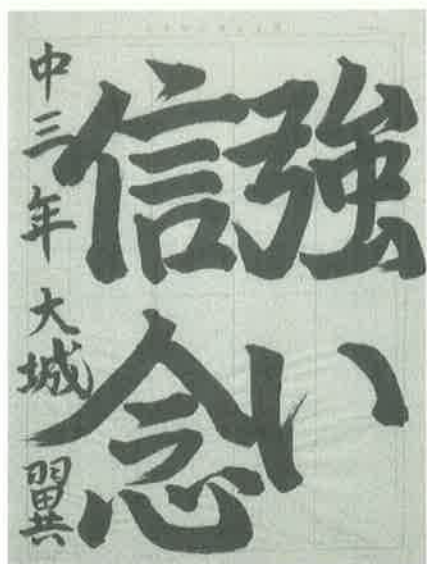 強い
信念
中三年 大城 翼